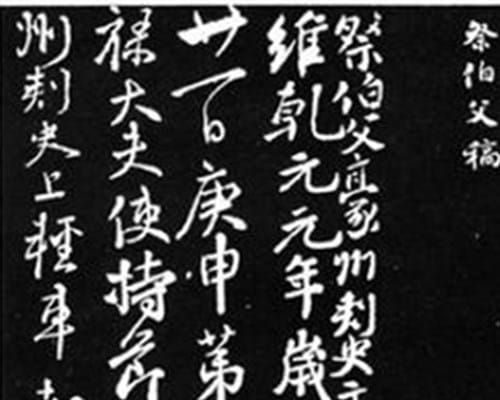 祭伯父稿
祭伯父豪州刺史文
維乾元元年歲
廿一日庚申第
祿大夫使持節
州刺史上輕車